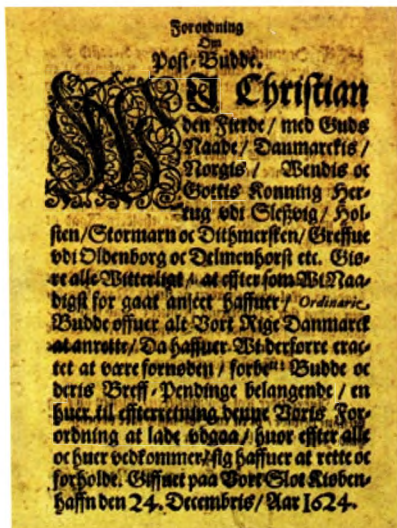 Forordning
Om
Post-Budde.
WJ Christian
den Fierde / med Guds
Naade / Danmarckis /
Norgis / Wendis oc
Gottis Konning Her-
tug vdi Sleßvig / Hol-
sten / Stormarn oc Dithmersken / Greffue
vdi Oldenborg oc Delmenhorst etc. Giø-
re alle Witterligt / at effter som Wi Naa-
digst for gaat anseet haffuer / Ordinarie
Budde offuer alt Vort Rige Danmarck
at anrette / Da haffuer Wi derforre erac-
tet at være fornøden / Budde oc
deris Breff-Pendinge belangende / en
huer til effterretning denne Voris For-
ordning at lade vdgaa / huor effter alle
oc huer vedkommer / sig haffuer at rette oc
forholde. Giffuet paa Vort Slot Kiøben-
haffn den 24. Decembris / Aar 1624.